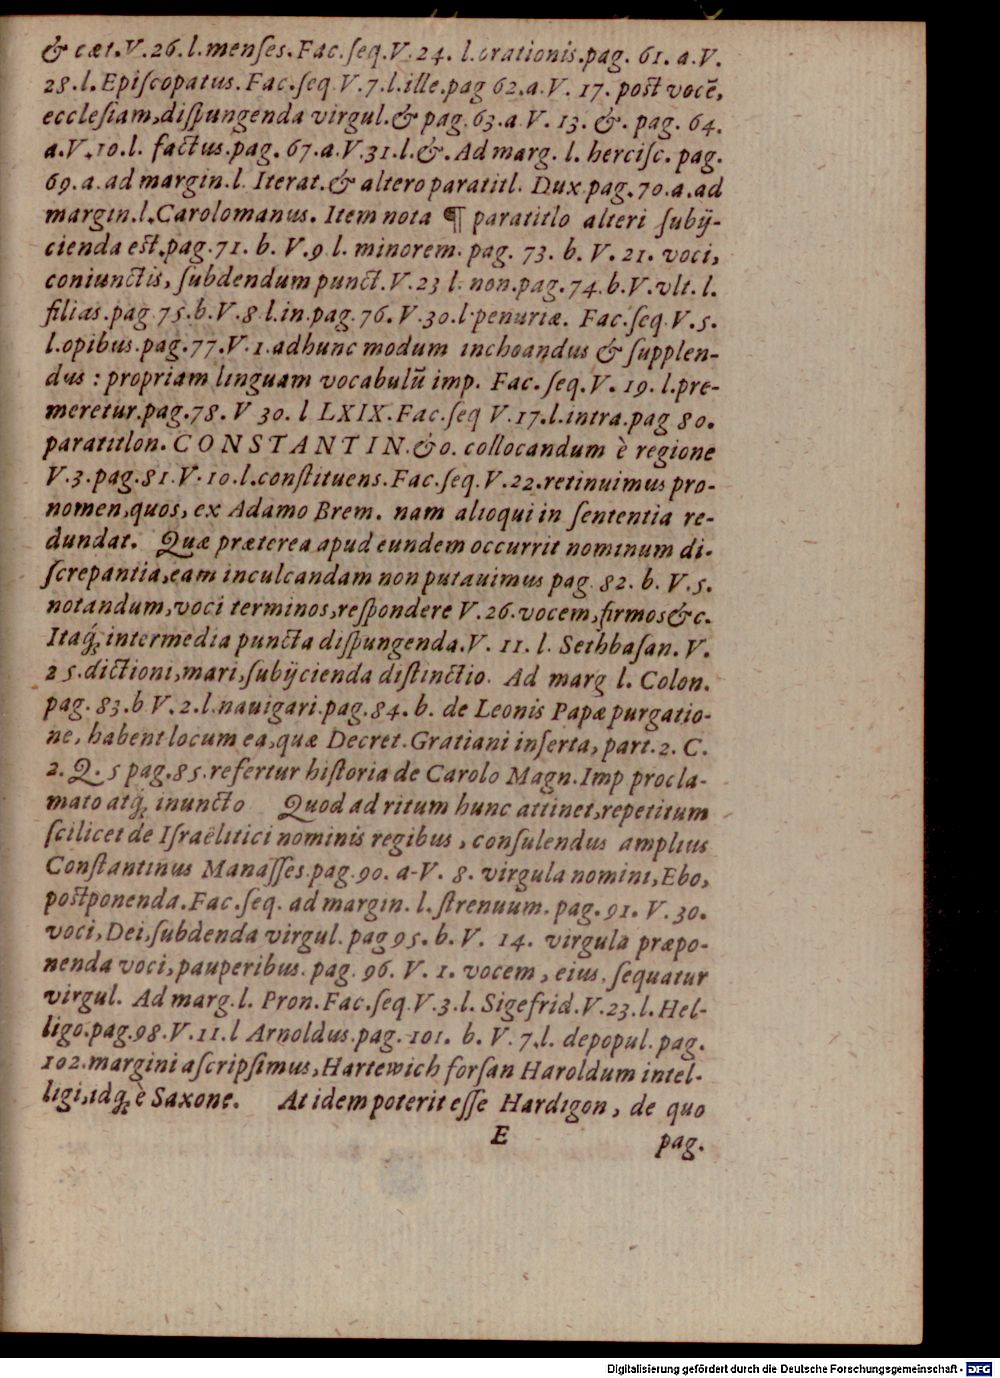 & cæt. V. 26. l. menſes. Fac. ſeq. V. 24. l. orationis. pag. 61. a. V.
28. l. Epiſcopatus. Fac. ſeq. V. 7. l. ille. pag 62. a. V. 17. poſt vocē,
eccleſiam, diſpungenda virgul. & pag. 63. a V. 13. &. pag. 64.
a. V. 10. l. factus. pag. 67. a. V. 31. l. &. Ad marg. l. herciſc. pag.
69. a. ad margin. l. Iterat. & altero paratitl. Dux. pag. 70. a. ad
margin. l. Carolomanus. Item nota ¶ paratitlo alteri ſubij-
cienda eſt. pag. 71. b. V. 9 l. minorem. pag. 73. b. V. 21. voci,
coniunctis, ſubdendum punct. V. 23 l. non. pag. 74. b. V. vlt. l.
filias. pag 75. b. V. 8 l. in. pag. 76. V. 30. l. penuriæ. Fac. ſeq V. 5.
l. opibus. pag. 77. V. 1. ad hunc modum inchoandus & ſupplen-
dus : propriam linguam vocabulū imp. Fac. ſeq. V. 19. l. pre-
meretur. pag. 78. V 30. l LXIX. Fac. ſeq V. 17. l. intra. pag 80.
paratitlon. CONSTANTIN. &o. collocandum è regione
V. 3. pag. 81. V. 10. l. conſtituens. Fac. ſeq. V. 22. retinuimus pro-
nomen, quos, ex Adamo Brem. nam alioqui in ſententia re-
dundat. Quæ præterea apud eundem occurrit nominum di-
ſcrepantia, eam inculcandam non putauimus pag. 82. b. V. 5.
notandum, voci terminos, reſpondere V. 26. vocem, firmos &c.
Itaq́; intermedia puncta diſpungenda. V. 11. l. Seihbaſan. V.
25. dictioni, mari, ſubijcienda diſtinctio. Ad marg l. Colon.
pag. 83. b V. 2. l. nauigari. pag. 84. b. de Leonis Papæ purgatio-
ne, habent locum ea, quæ Decret. Gratiani inſerta, part. 2. C.
2. Q. 5 pag. 85. refertur hiſtoria de Carolo Magn. Imp procla-
mato atq́; inuncto Quod ad ritum hunc attinet, repetitum
ſcilicet de Iſraëlitici nominis regibus, conſulendus amplius
Conſtantinus Manaſſes. pag. 90. a. V. 8. virgula nomini, Ebo,
poſtponenda. Fac. ſeq. ad margin. l. ſtrenuum. pag. 91. V. 30.
voci, Dei, ſubdenda virgul. pag 95. b. V. 14. virgula præpo-
nenda voci, pauperibus. pag. 96. V. 1. vocem, eius, ſequatur
virgul. Ad marg. l. Pron. Fac. ſeq. V. 3. l. Sigefrid. V. 23. l. Hel-
ligo. pag. 98. V. 11. l Arnoldus. pag. 101. b. V. 7. l. depopul. pag.
102. margini aſcripſimus, Hartewich forſan Haroldum intel-
ligi, idq́; è Saxone. At idem poterit eſſe Hardigon, de quo
E pag.
Digitalisierung gefördert durch die Deutsche Forschungsgemeinschaft - DFG